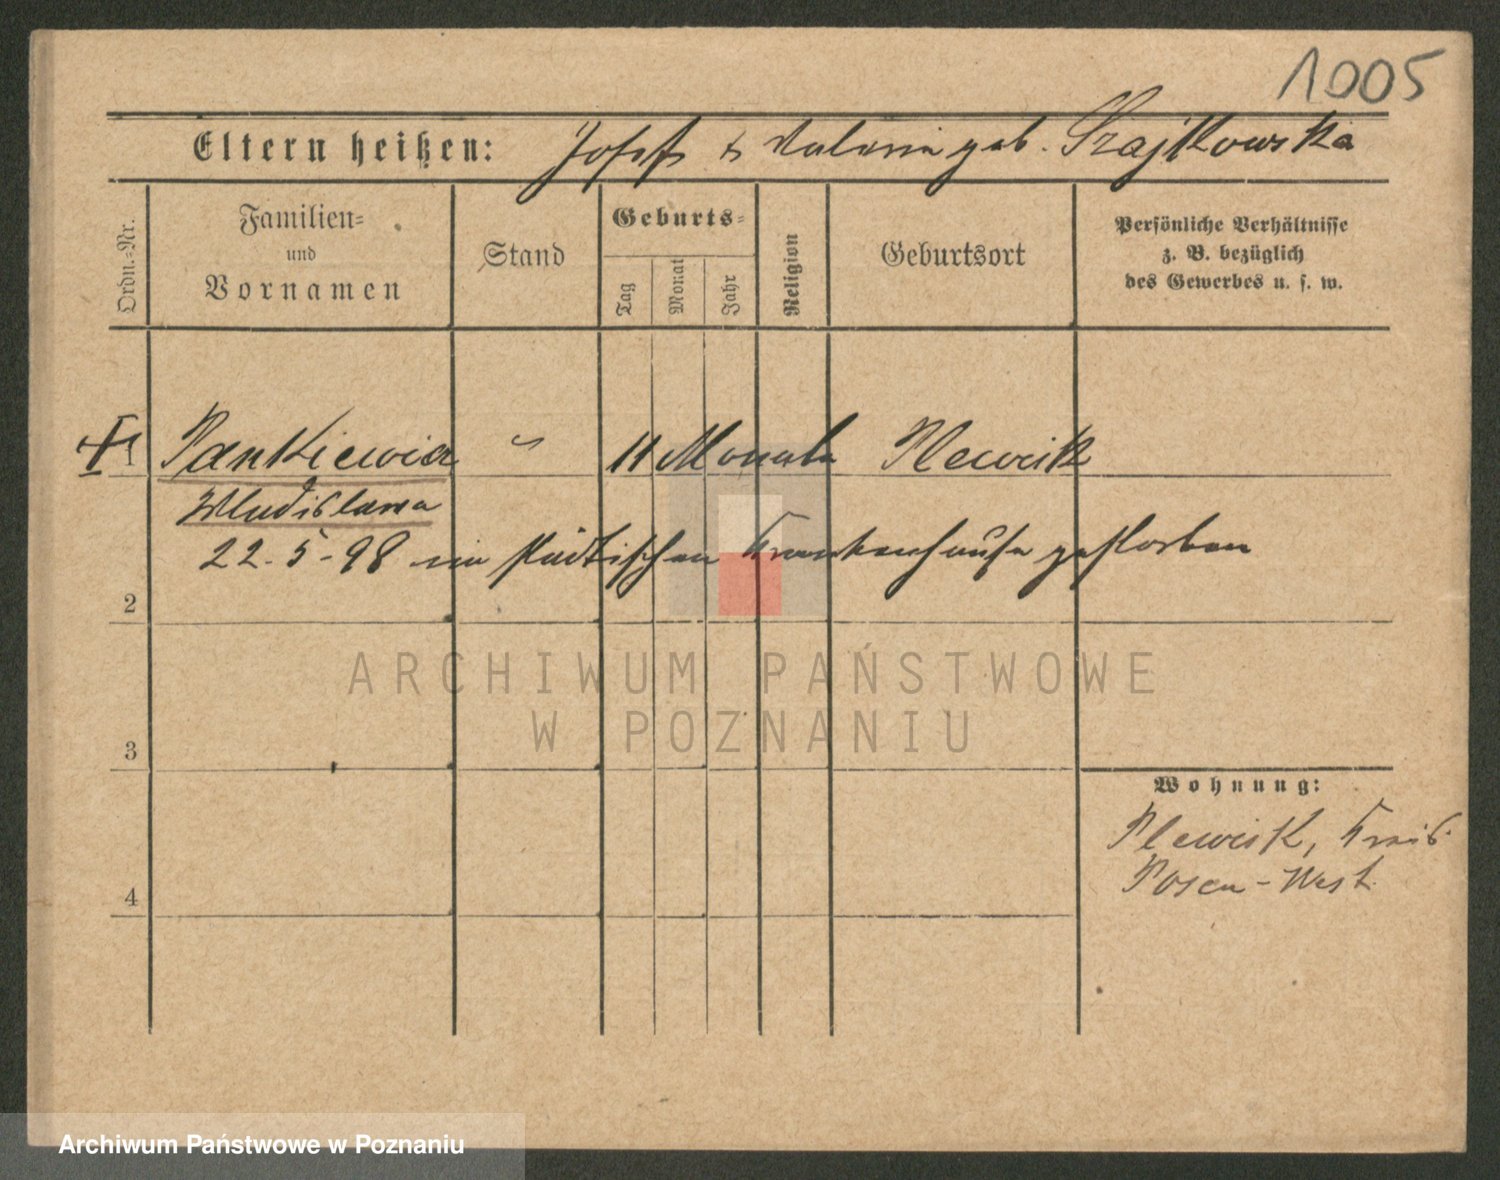 1005
Eltern heißen: Josef & Valerie geb. Szajkowska
Ordn.-Nr.
Familien-
und
Vornamen
Stand
Geburts-
Tag
Monat
Jahr
Religion
Geburtsort
Persönliche Verhältnisse
z. B. bezüglich
des Gewerbes u. s. w.
1 Pankiewicz " 11 Monate Plewisk
Wladislawa
22.5.98 im städtischen Krankenhause gestorben
2
ARCHIWUM PAŃSTWOWE
W POZNANIU
3
Wohnung:
Plewisk, Kreis
Posen-West
4
Archiwum Państwowe w Poznaniu